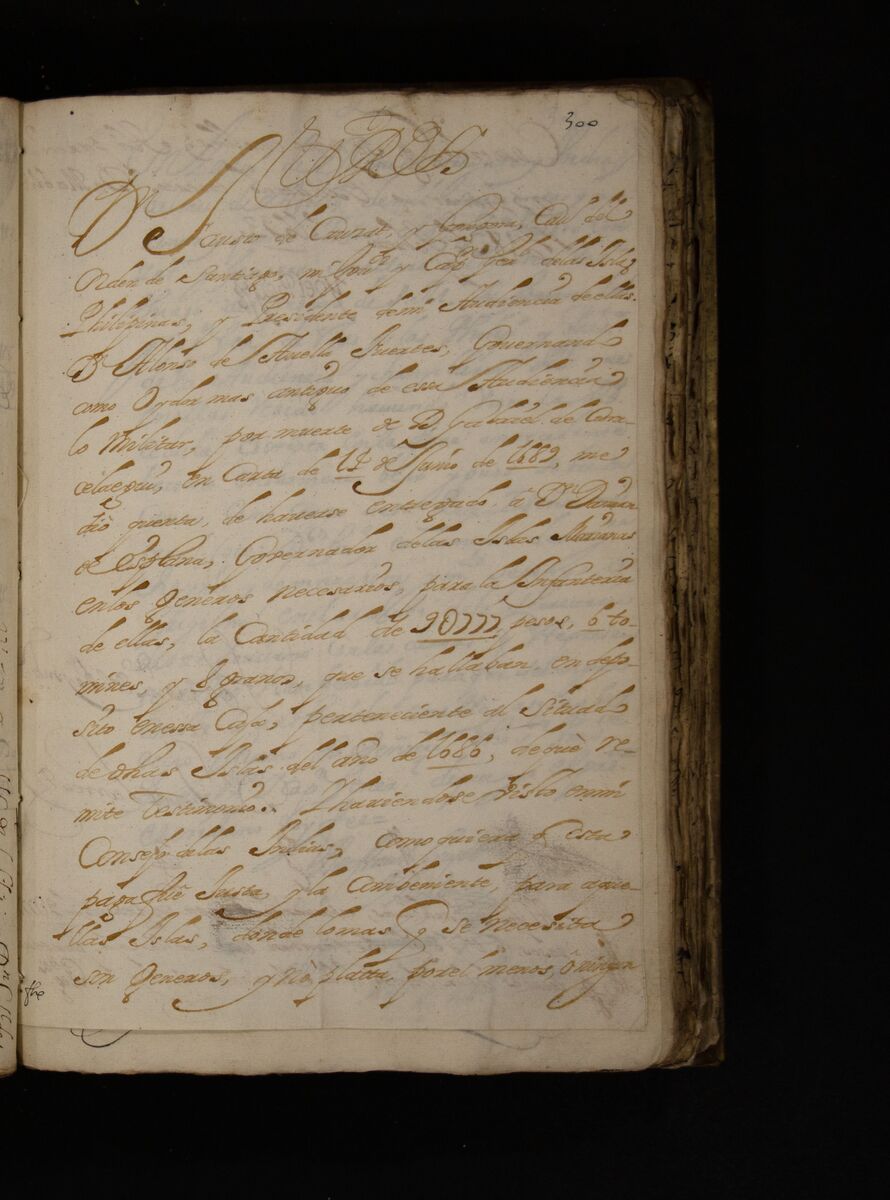 300
EL REY
Dn. Fausto de Cruzat, y Gongora, Cavo. del
Orden de Santiago, mi Govor. y Capn. Genl. de las Islas
Philipinas, y Presidente de mi Audiencia de ellas.
Dn. Alonso de Avella Fuertes, Governando
como Oydor mas antiguo de essa Audiencia
lo Militar, por muerte de Dn. Gabriel de Cura-
celaegui, en Carta de de Junio de 1689, me
dio quenta, de haverse entregado, â Dn. Damian
de Esplana, Governador de las Islas Marianas
en los generos necesarios, para la Infanteria
de ellas, la Cantidad de pesos, 6 to-
mines, y 8 granos, que se hallaban, en depo-
sito en essa Caxa, perteneciente al situado
de dhas Islas del año de 1686, de què re-
mite Testimonio. Y haviendose visto en mi
Consejo de las Indias, como quiera q esta
paga fuè Justa, y la Combeniente, para aque-
llas Islas, donde lo mas q se necesita
son generos, y nò platta, por el menos, ô ningun
fho